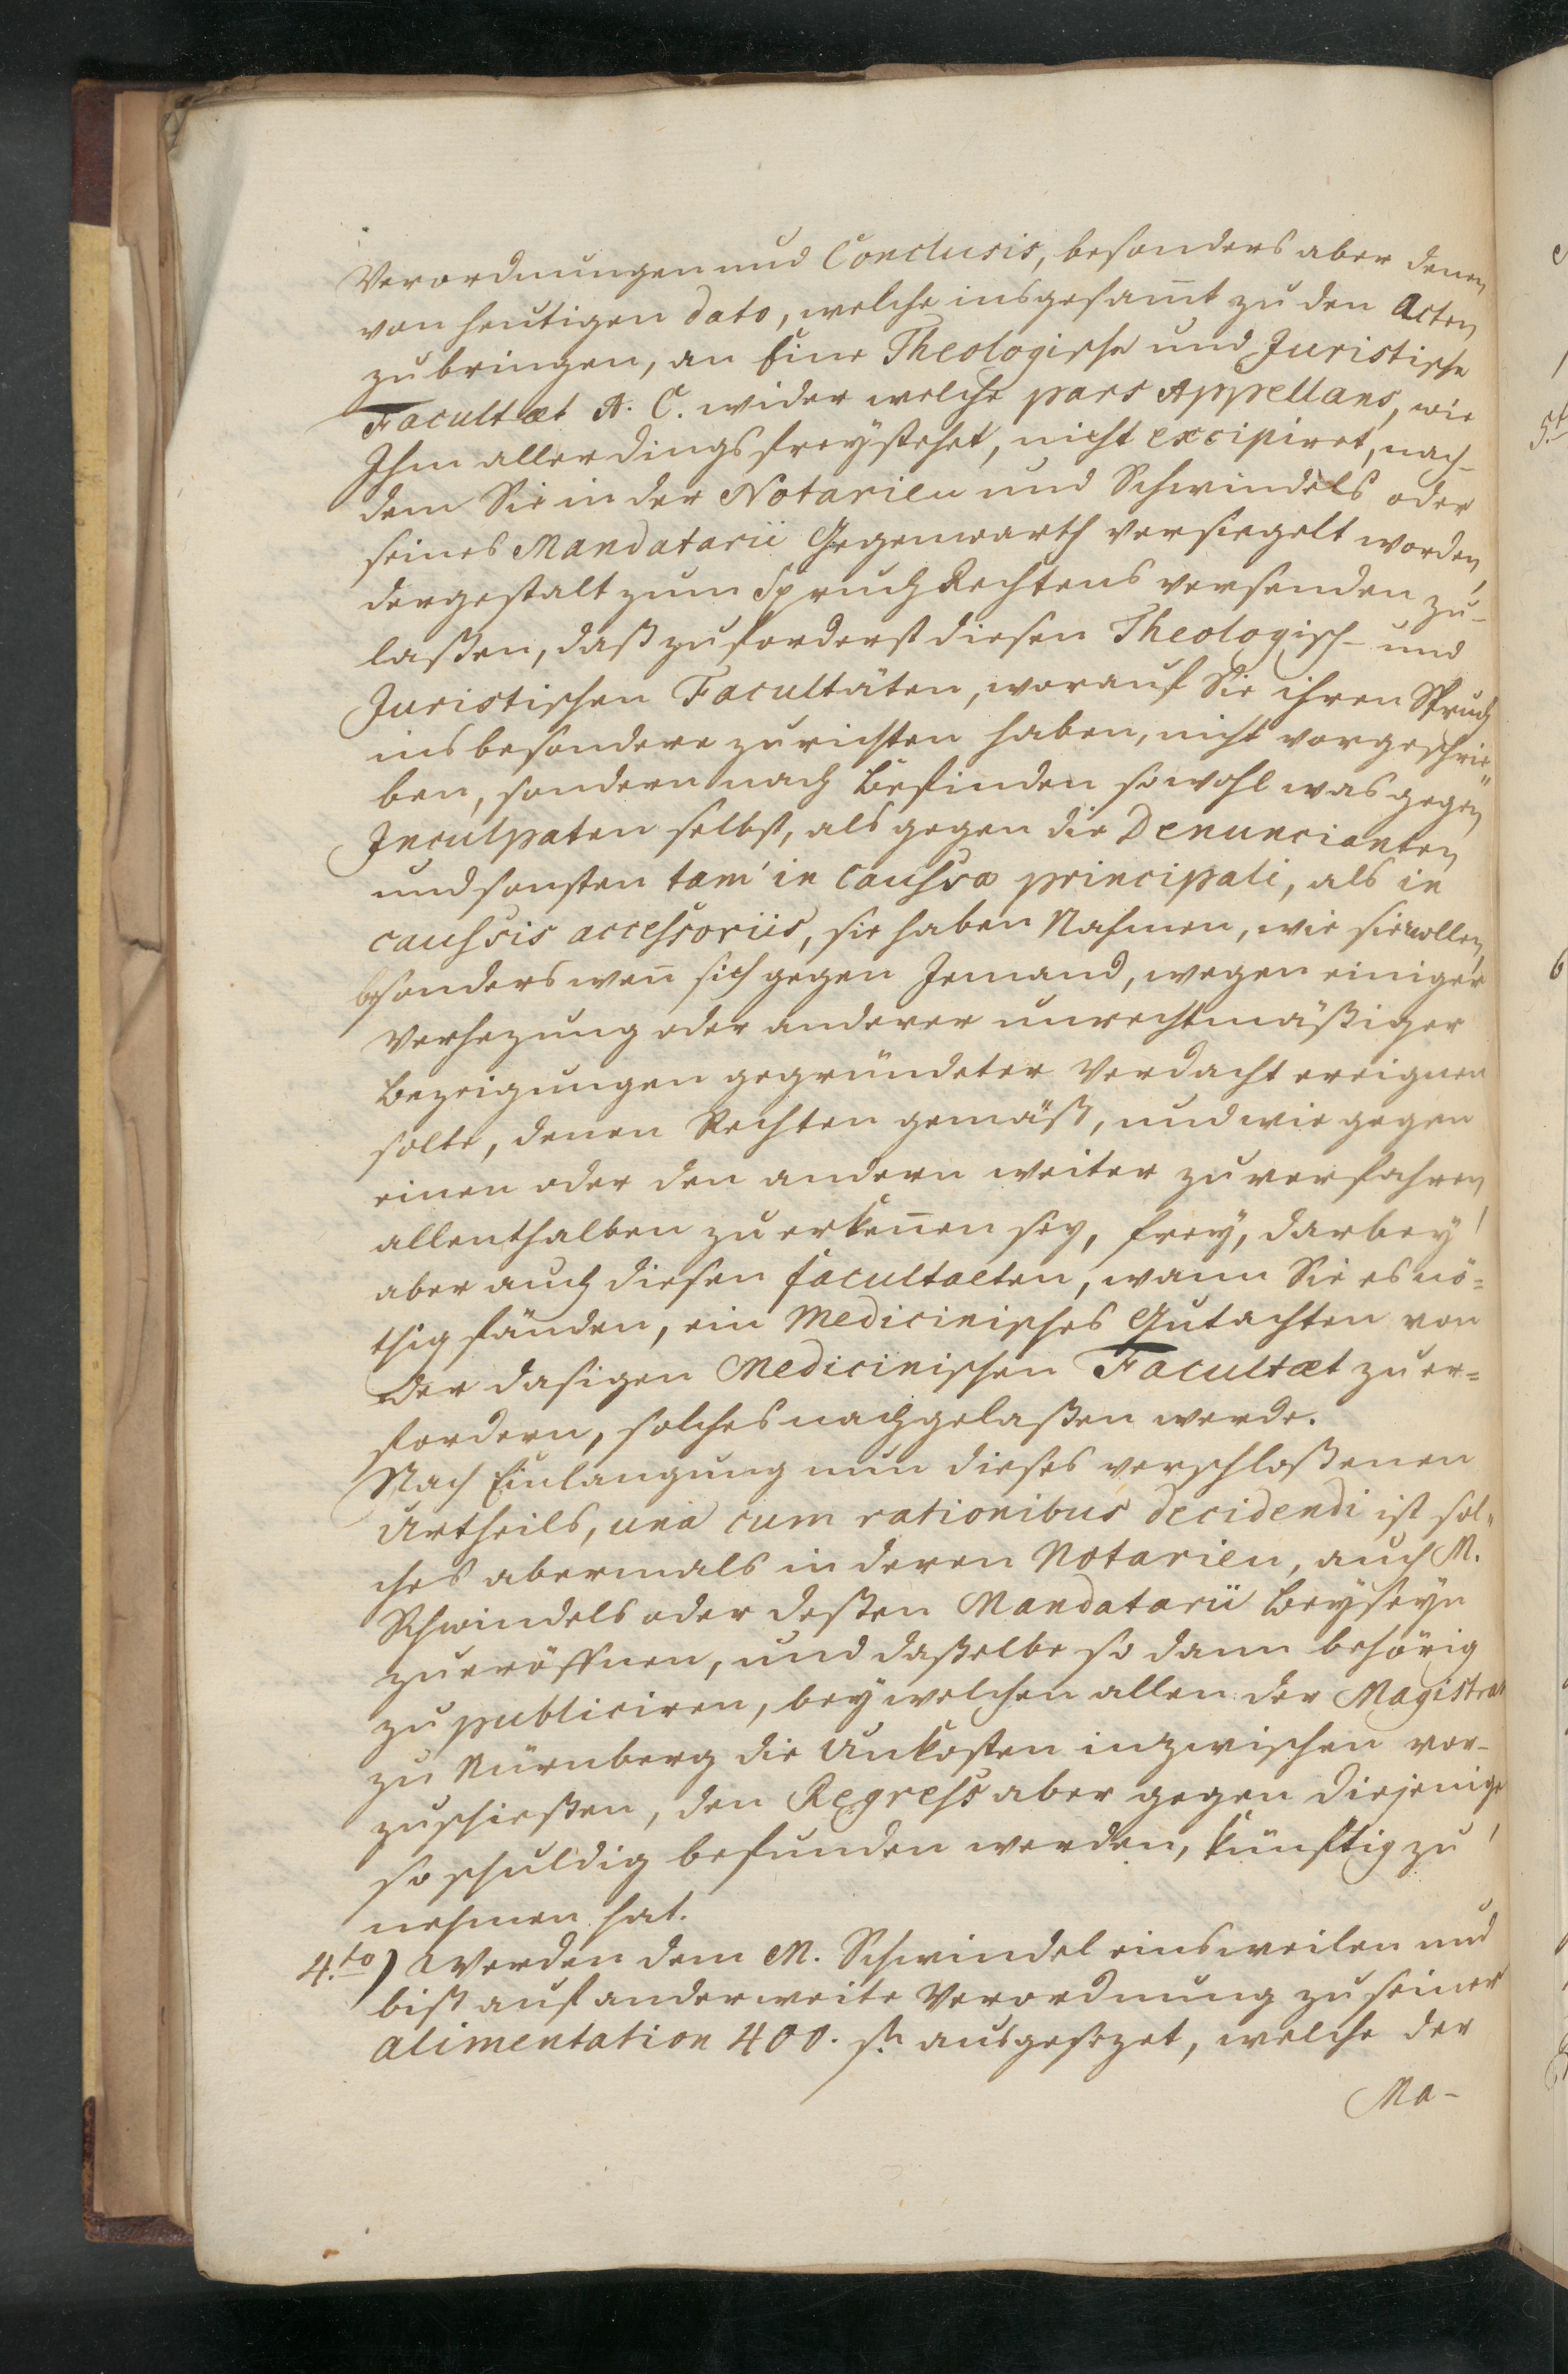 Verordnungen und Conclusis, besonders aber denen
von heutigen dato, welche insgesam̅t zu den Acten
zu bringen, an Eine Theologische und Juristische
Facultæt A. C. wider welche pars Appellans, wie
Ihm allerdings freystehet, nicht excipiret, nach-
dem Sie in der Notarien und Schwindels oder
seines Mandatarii Gegenwarth versiegelt worden,
dergestalt zum Spruch Rechtens versenden zu-
laßen, daß zuforderst diesen Theologisch- und
Juristischen Facultäten, worauf Sie ihren Spruch
ins besondere zurichten haben, nicht vorgeschrie-
ben, sondern nach Befinden sowohl was gegen
Inculpaten selbst, als gegen die Denuncianten
und sonsten tam in caussa principali, als in
caussis accessoriis, sie haben Nahmen, wie sie wollen,
besonders wen̅ sich gegen Jemand, wegen einiger
Verhezung oder anderer unrechtmäßiger
Bezeigungen gegründeter Verdacht ereignen
solte, denen Rechten gemäß, und wie gegen
einen oder den andern weiter zu verfahren,
allenthalben zu erken̅en sey, frey, darbey
aber auch diesen facultaeten, wann Sie es nö=
thig fänden, ein Medicinisches Gutachten von
der dasigen Medicinischen Facultæt zu er=
fordern, solches nachgelaßen werde.
Nach Einlangung nun dieses verschloßenen
Urtheils, una cum rationibus decidendi ist sol-
ches abermals in deren Notarien, auch M.
Schwindels oder deßen Mandatarii Beyseyn
zu eröffnen, und daßelbe so dann behörig
zu publiciren, bey welchen allen der Magistrat
zu Nürnberg die Unkosten inzwischen vor-
zuschießen, den Regress aber gegen diejenige,
so schuldig befunden werden, künftig zu
nehmen hat.
4.to) Werden dem M. Schwindel einsweilen und
biß auf anderweite Verordnung zu seiner
alimentation 400. fl. ausgesezet, welche der
Ma-